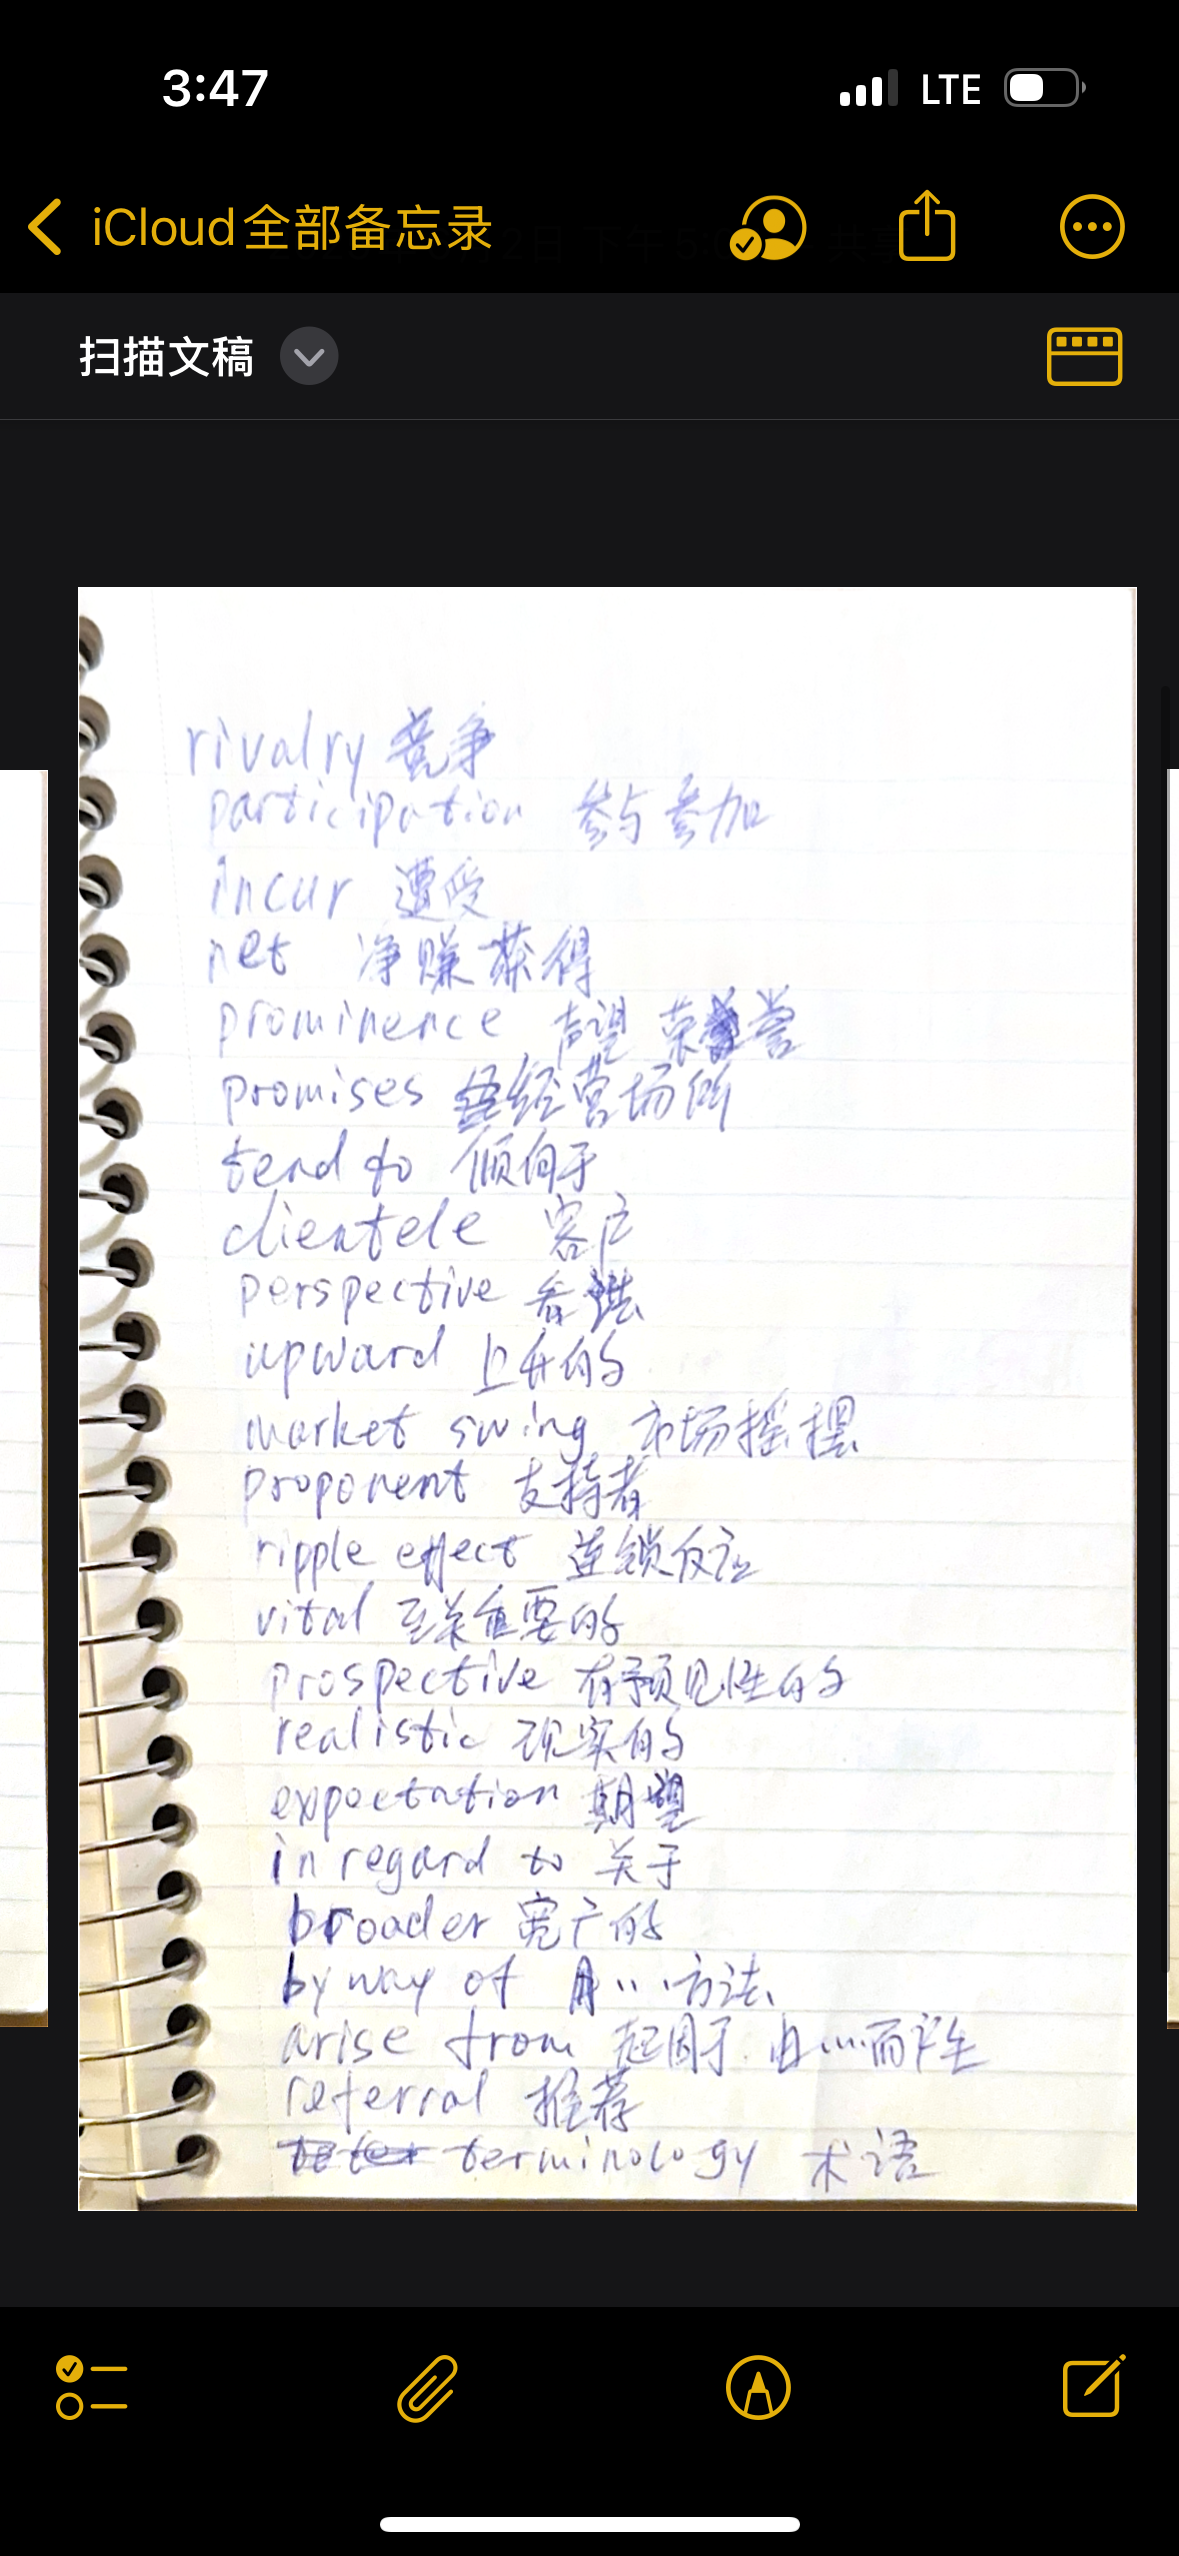 3:47 LTE
iCloud全部备忘录
扫描文稿
rivalry 竞争
participation 参与 参加
incur 遭受
net 净赚 获得
prominence 声望 荣誉
promises 经营场所
tend to 倾向于
clientele 客户
perspective 看法
upward 上升的
market swing 市场摇摆
proponent 支持者
ripple effect 连锁反应
vital 至关重要的
prospective 有预见性的
realistic 现实的
expectation 期望
in regard to 关于
broader 宽广的
by way of 用……方法
arise from 起因于. 由……而产生
referral 推荐
terminology 术语